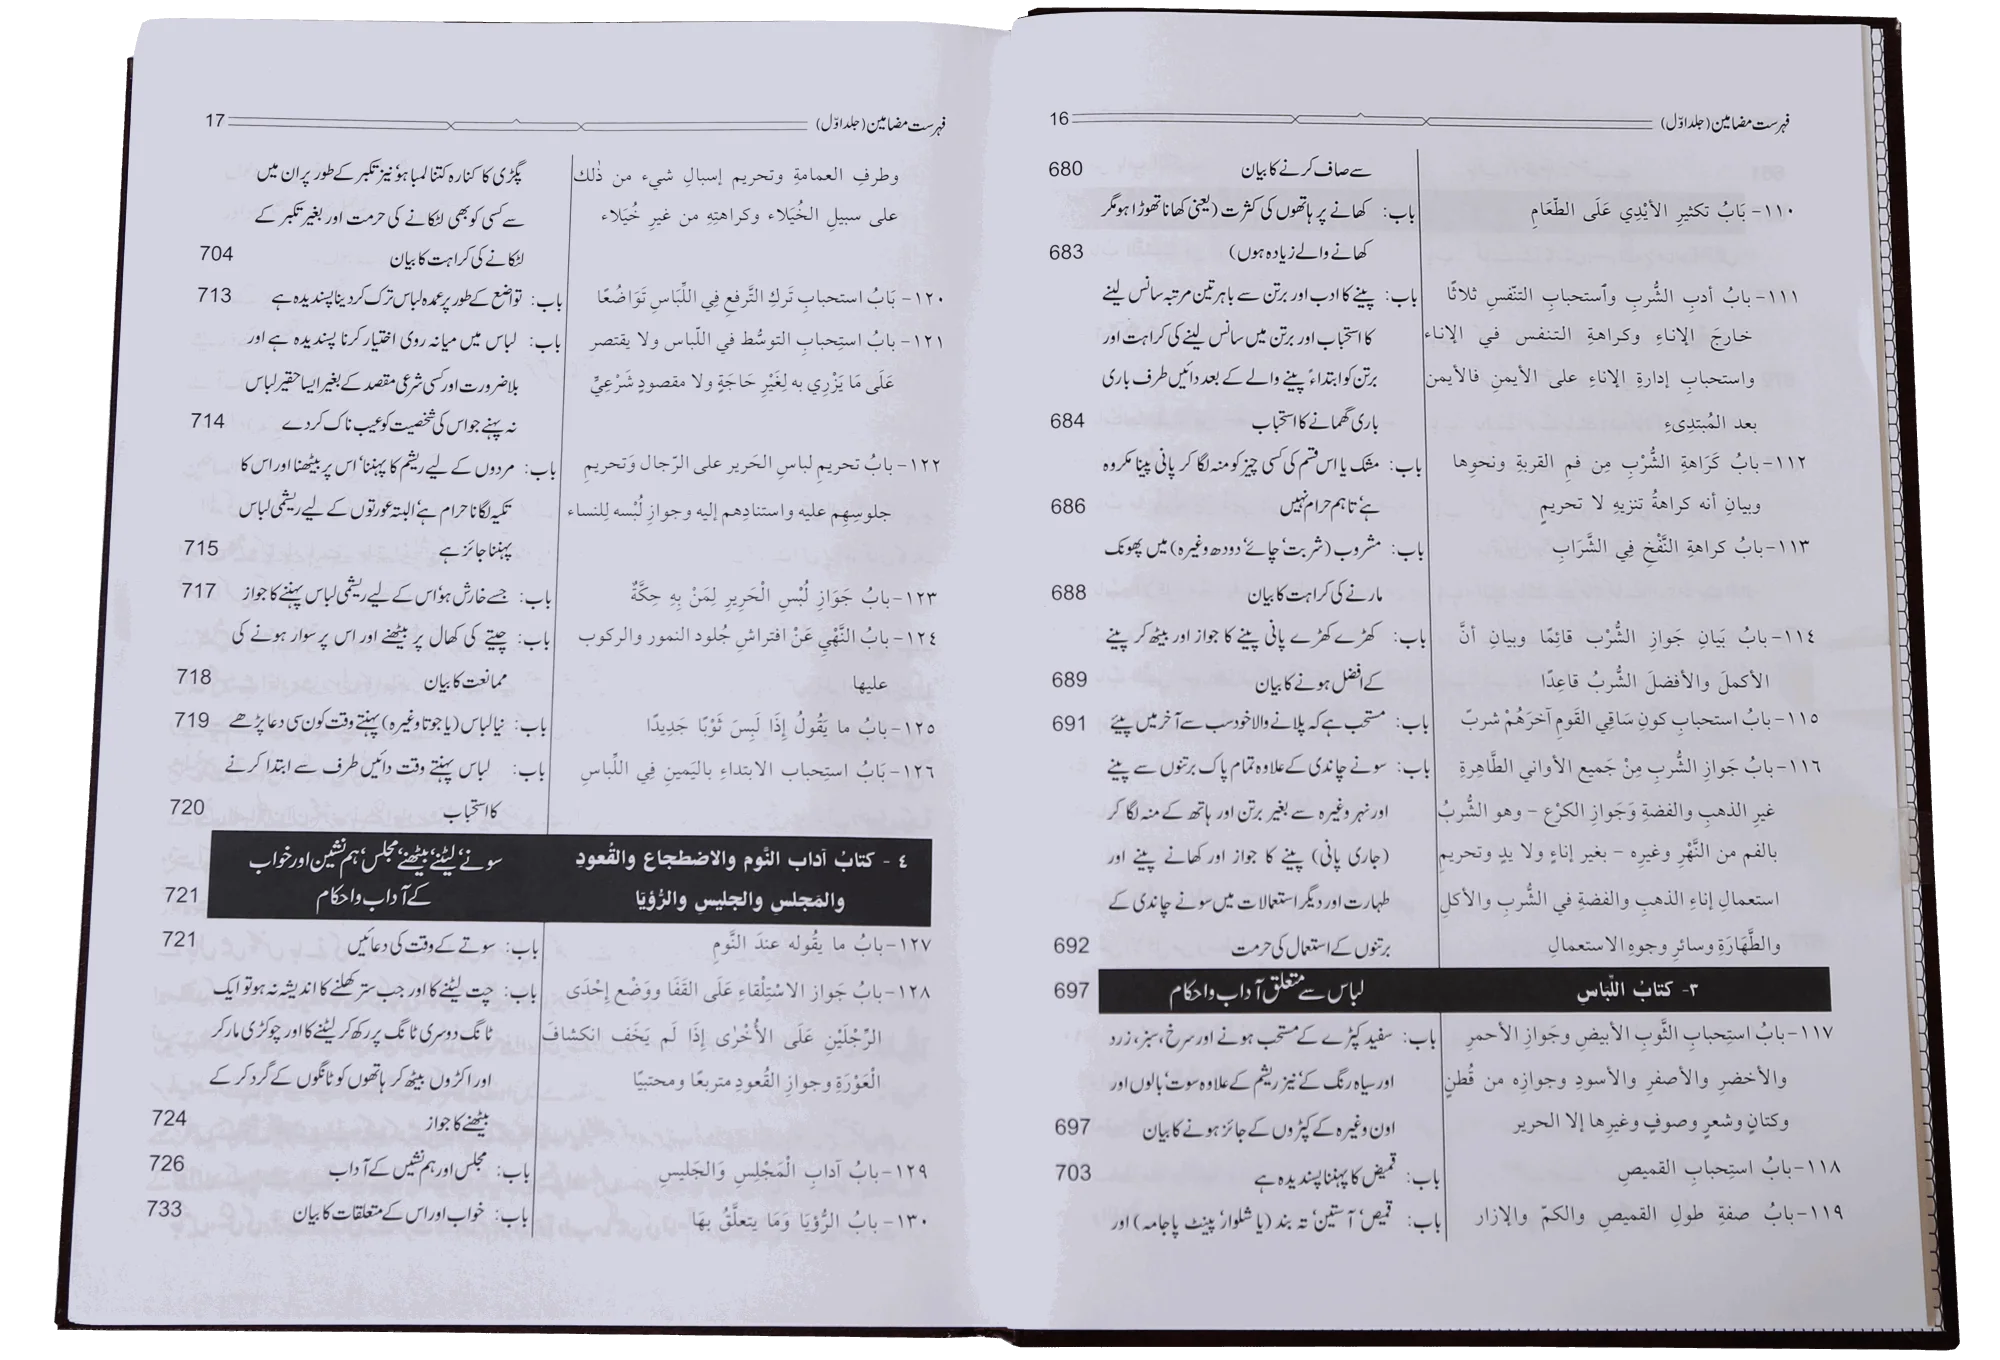 فہرست مضامین (جلد اوّل) 16
سے صاف کرنے کا بیان 680
١١٠- بَابُ تكثيرِ الأيْدِي عَلَى الطّعَامِ باب: کھانے پر ہاتھوں کی کثرت (یعنی کھانا تھوڑا ہو مگر
کھانے والے زیادہ ہوں) 683
١١١- بابُ أدبِ الشُّربِ وٱستحبابِ التنّفسِ ثلاثًا باب: پینے کا ادب اور برتن سے باہر تین مرتبہ سانس لینے
خارجَ الإناءِ وكراهةِ التنفس في الإناء کا استحباب اور برتن میں سانس لینے کی کراہت اور
واستحبابِ إدارةِ الإناءِ على الأيمنِ فالأيمن برتن کو ابتداءً پینے والے کے بعد دائیں طرف باری
بعد المُبتدِىءِ باری گھمانے کا استحباب 684
١١٢- بابُ كَرَاهةِ الشُّرْبِ مِن فمِ القربةِ ونحوِها باب: مشک یا اس قسم کی کسی چیز کو منہ لگا کر پانی پینا مکروہ
وبيانِ أنه كراهةُ تنزيهٍ لا تحريمٍ ہے‘ تاہم حرام نہیں 686
١١٣- بابُ كراهةِ النَّفْخِ فِي الشَّرَابِ باب: مشروب (شربت‘ چائے‘ دودھ وغیرہ) میں پھونک
مارنے کی کراہت کا بیان 688
١١٤- بابُ بَيانِ جَوازِ الشُّرْب قائِمًا وبيانِ أنَّ باب: کھڑے کھڑے پانی پینے کا جواز اور بیٹھ کر پینے
الأكملَ والأفضلَ الشُّربُ قاعِدًا کے افضل ہونے کا بیان 689
١١٥- بابُ استحبابِ كونِ سَاقِي القَومِ آخرَهُمْ شربً باب: مستحب ہے کہ پلانے والا خود سب سے آخر میں پیئے 691
١١٦- بابُ جَوازِ الشُّربِ مِنْ جَميع الأواني الطَّاهِرةِ باب: سونے چاندی کے علاوہ تمام پاک برتنوں سے پینے
غيرِ الذهبِ والفضةِ وَجَوازِ الكرْع - وهو الشُّربُ اور نہر وغیرہ سے بغیر برتن اور ہاتھ کے منہ لگا کر
بالفم من النَّهْرِ وغيرِه - بغير إناءٍ ولا يدٍ وتحريمِ (جاری پانی) پینے کا جواز اور کھانے پینے اور
استعمالِ إناءِ الذهبِ والفضةِ في الشُّربِ والأكلِ طہارت اور دیگر استعمالات میں سونے چاندی کے
والطَّهَارَةِ وسائرِ وجوهِ الاستعمالِ برتنوں کے استعمال کی حرمت 692
٣- كتابُ اللّبَاسِ لباس سے متعلق آداب و احکام 697
١١٧- بابُ استِحبابِ الثَّوبِ الأبيضِ وجَوازِ الأحمرِ باب: سفید کپڑے کے مستحب ہونے اور سرخ، سبز، زرد
والأخضرِ والأصفرِ والأسودِ وجوازِه من قُطنٍ اور سیاہ رنگ کے‘ نیز ریشم کے علاوہ سوت‘ بالوں اور
وكتانٍ وشعرٍ وصوفٍ وغيرِها إلا الحرير اون وغیرہ کے کپڑوں کے جائز ہونے کا بیان 697
١١٨- بابُ استِحبابِ القميصِ باب: قمیض کا پہننا پسندیدہ ہے 703
١١٩- بابُ صفةِ طولِ القميصِ والكمّ والإزار باب: قمیص‘ آستین‘ تہ بند (یا شلوار‘ پینٹ پاجامہ) اور
فہرست مضامین (جلد اوّل) 17
وطرفِ العمامةِ وتحريم إسبالِ شيء من ذٰلك پگڑی کا کنارہ کتنا لمبا ہو‘ نیز تکبر کے طور پر ان میں
على سبيلِ الخُيَلاء وكراهتِهِ من غيرِ خُيَلاء سے کسی کو بھی لٹکانے کی حرمت اور بغیر تکبر کے
لٹکانے کی کراہت کا بیان 704
١٢٠- بَابُ استحبابِ تَركِ التَّرفعِ فِي اللِّبَاسِ تَوَاضُعًا باب: تواضع کے طور پر عمدہ لباس ترک کردینا پسندیدہ ہے 713
١٢١- بابُ استِحبابِ التوسُّط في اللّباس ولا يقتصر باب: لباس میں میانہ روی اختیار کرنا پسندیدہ ہے اور
عَلَى مَا يَزْرِي به لِغَيْرِ حَاجَةٍ ولا مقصودٍ شَرْعِيٍّ بلا ضرورت اور کسی شرعی مقصد کے بغیر ایسا حقیر لباس
نہ پہنے جو اس کی شخصیت کو عیب ناک کر دے 714
١٢٢- بابُ تحريمِ لباسِ الحَرير على الرّجال وَتحريمِ باب: مردوں کے لیے ریشم کا پہننا‘ اس پر بیٹھنا اور اس کا
جلوسِهِم عليه واستنادِهم إليه وجوازِ لُبْسه لِلنساء تکیہ لگانا حرام ہے‘ البتہ عورتوں کے لیے ریشمی لباس
پہننا جائز ہے 715
١٢٣- بابُ جَوَازِ لُبْسِ الْحَرِيرِ لِمَنْ بِهِ حِكَّةٌ باب: جسے خارش ہو‘ اس کے لیے ریشمی لباس پہننے کا جواز 717
١٢٤- بابُ النَّهْيِ عَنْ افتراشِ جُلود النمور والركوب باب: چیتے کی کھال پر بیٹھنے اور اس پر سوار ہونے کی
عليها ممانعت کا بیان 718
١٢٥- بابُ ما يَقُولُ إذَا لَبِسَ ثَوْبًا جَدِيدًا باب: نیا لباس (یا جوتا وغیرہ) پہنتے وقت کون سی دعا پڑھے 719
١٢٦- بَابُ استِحباب الابتداءِ باليَمينِ فِي اللِّباسِ باب: لباس پہنتے وقت دائیں طرف سے ابتدا کرنے
کا استحباب 720
٤ - كتابُ آداب النَّوم والاضطجاع والقُعودِ سونے‘ لیٹنے‘ بیٹھنے‘ مجلس‘ ہم نشین اور خواب
والمَجلسِ والجليسِ والرُّؤيَا کے آداب و احکام 721
١٢٧- بابُ ما يقُوله عندَ النَّومِ باب: سوتے کے وقت کی دعائیں 721
١٢٨- بابُ جَواز الاسْتِلْقاءِ عَلَى القَفَا ووَضْع إحْدَى باب: چت لیٹنے کا اور جب ستر کھلنے کا اندیشہ نہ ہو تو ایک
الرِّجْلَيْنِ عَلَى الأُخْرٰى إِذَا لَم يَخَف انكشافَ ٹانگ دوسری ٹانگ پر رکھ کر لیٹنے کا اور چوکڑی مار کر
الْعَوْرَةِ وجوازِ القُعودِ متربعًا ومحتبيًا اور اکڑوں بیٹھ کر ہاتھوں کو ٹانگوں کے گرد کر کے
بیٹھنے کا جواز 724
١٢٩- بابُ آدابُ الْمَجْلِسِ وَالجَليسِ باب: مجلس اور ہم نشیں کے آداب 726
١٣٠- بابُ الرُّؤيَا وَمَا يتعلَّقُ بهَا باب: خواب اور اس کے متعلقات کا بیان 733